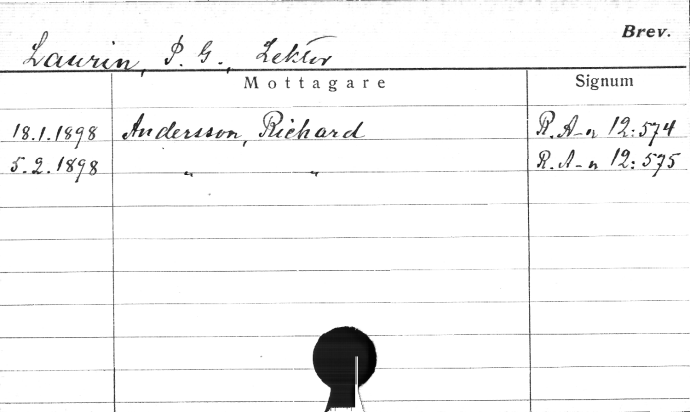 Brev.
Laurin, P. G., Lektor
Mottagare Signum
18.1.1898 Andersson, Richard R. A-n 12:574
5.2.1898 " " R. A-n 12:575